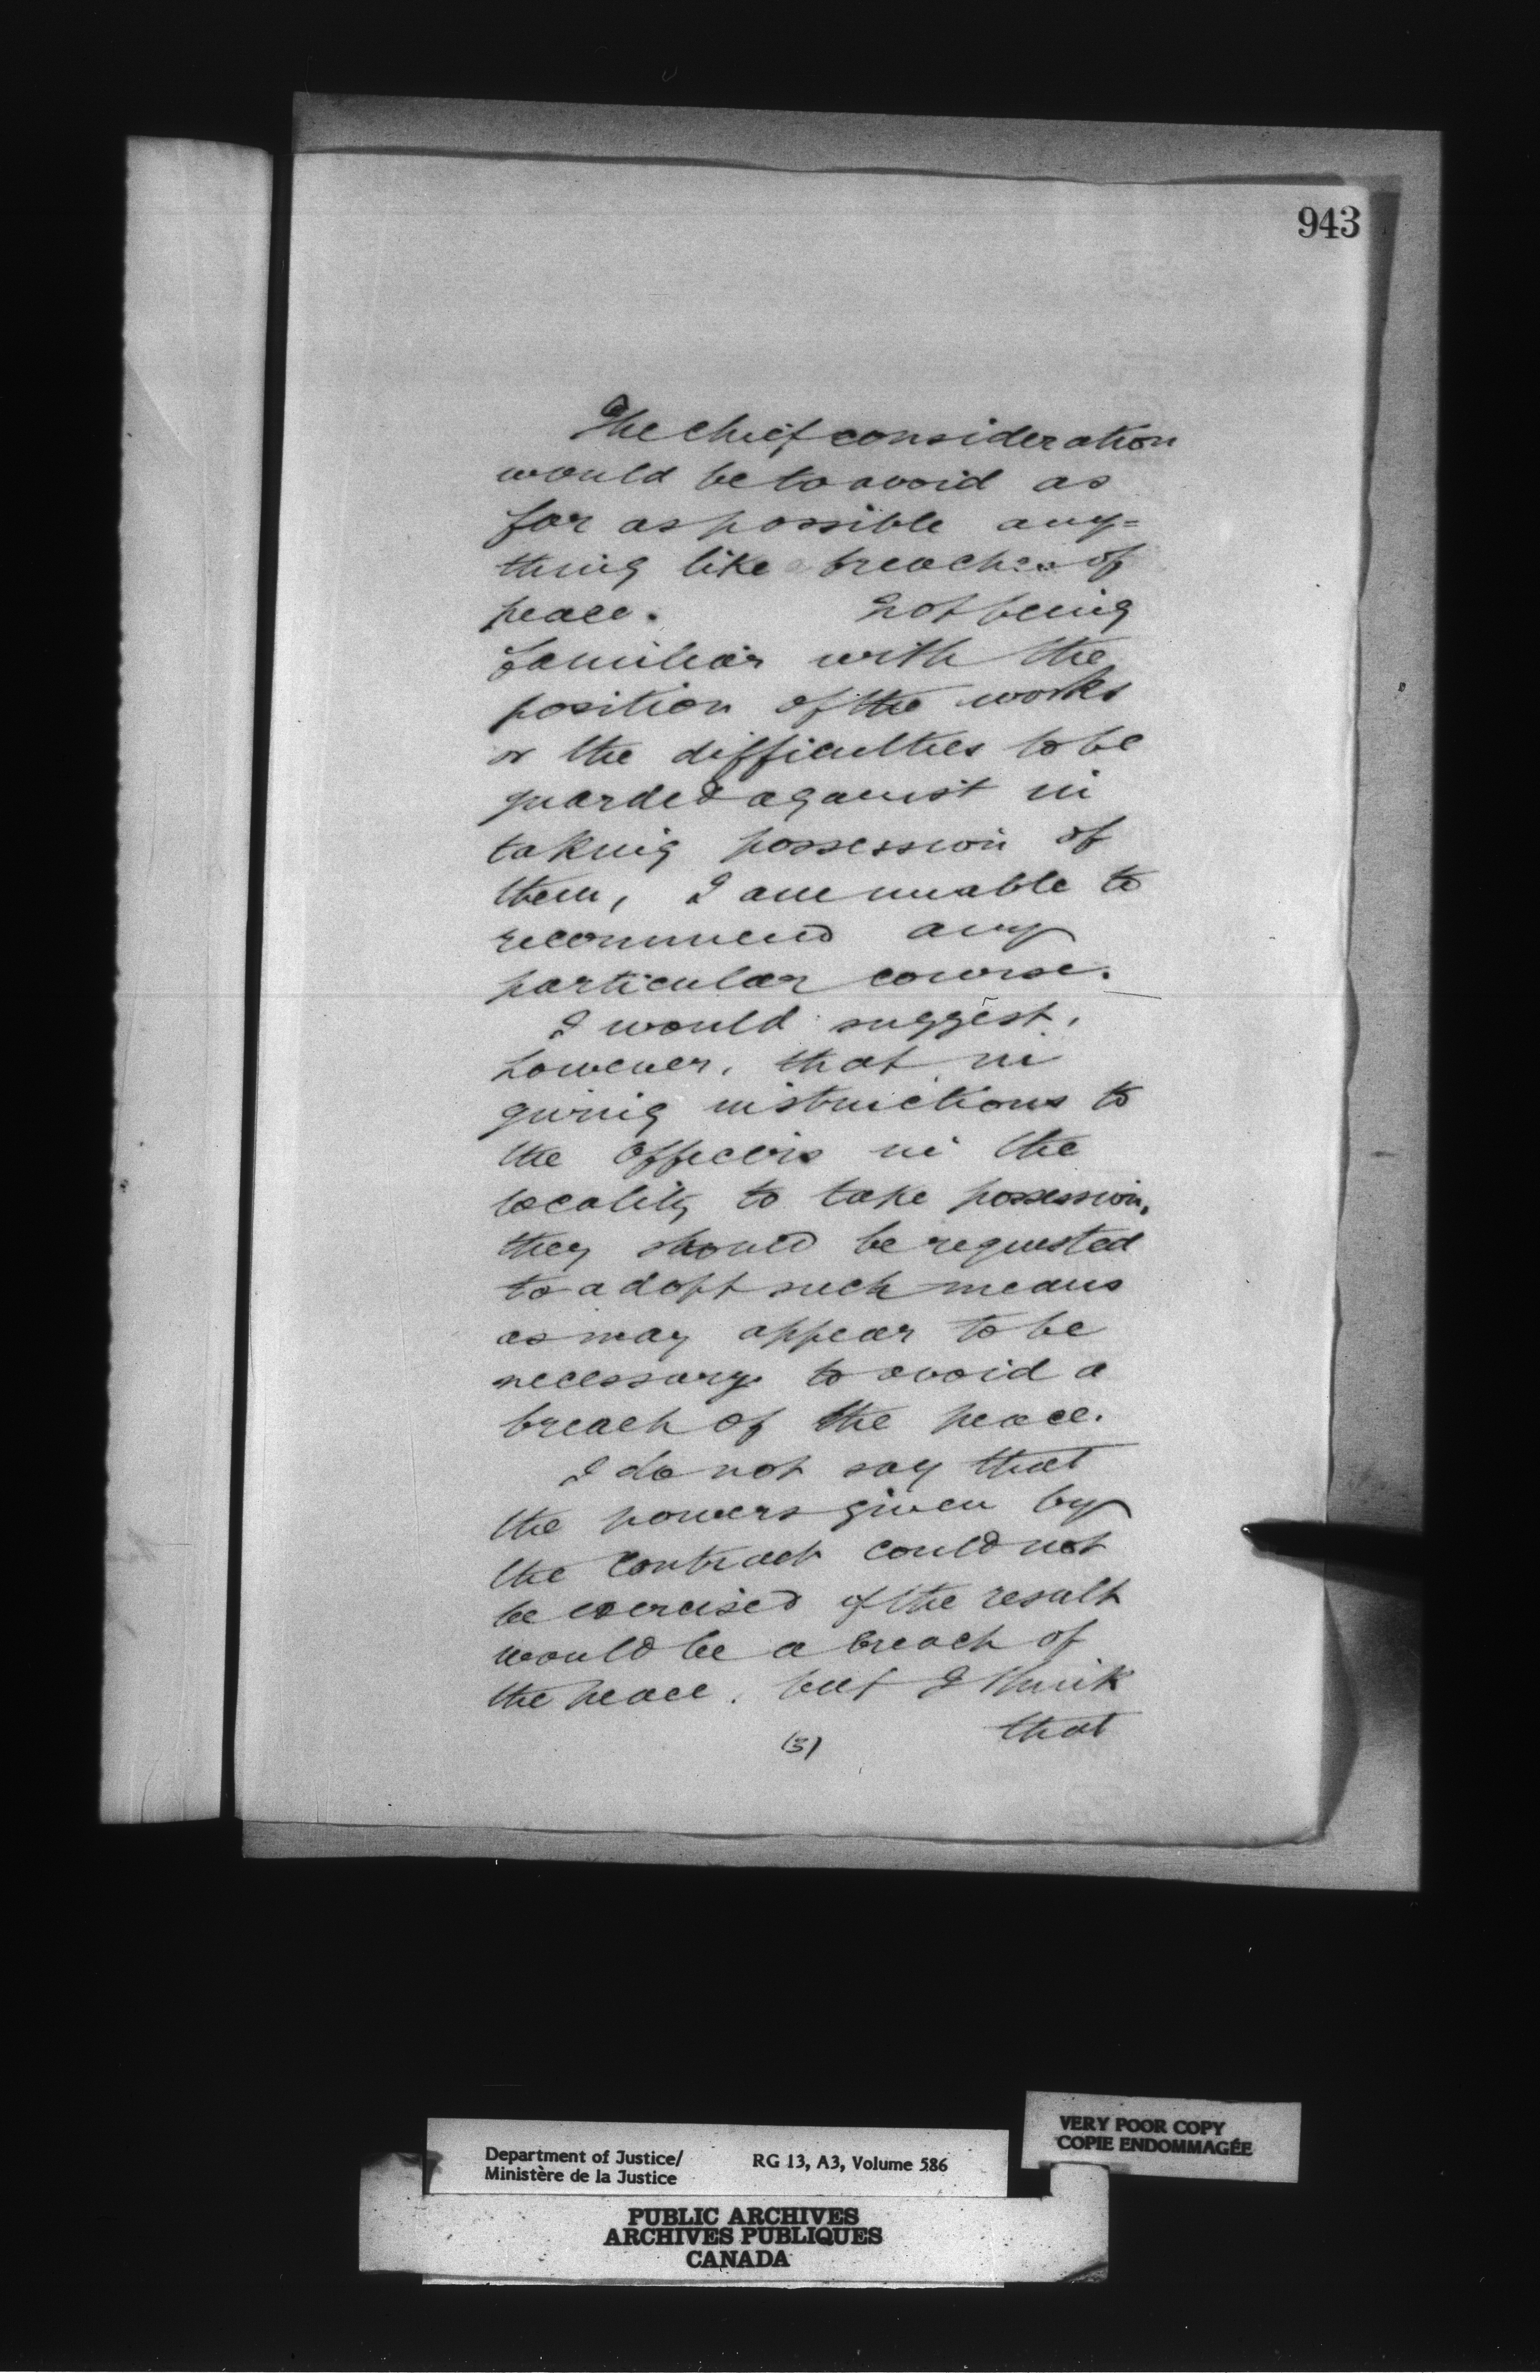 943
The chief consideration
would be to avoid as
far as possible any=
thing like breaches of
peace. Not being
familiar with the
position of the works
or the difficulties to be
guarded against in
taking possession of
them, I am unable to
recommend any
particular course.
I would suggest,
however, that in
giving instructions to
the Officers in the
locality to take possession,
they should be requested
to adopt such means
as may appear to be
necessary to avoid a
breach of the peace.
I do not say that
the powers given by
the Contract could not
be exercised if the result
would be a breach of
the peace, but I think
that
(3)
VERY POOR COPY
COPIE ENDOMMAGÉE
Department of Justice/ RG 13, A3, Volume 586
Ministère de la Justice
PUBLIC ARCHIVES
ARCHIVES PUBLIQUES
CANADA